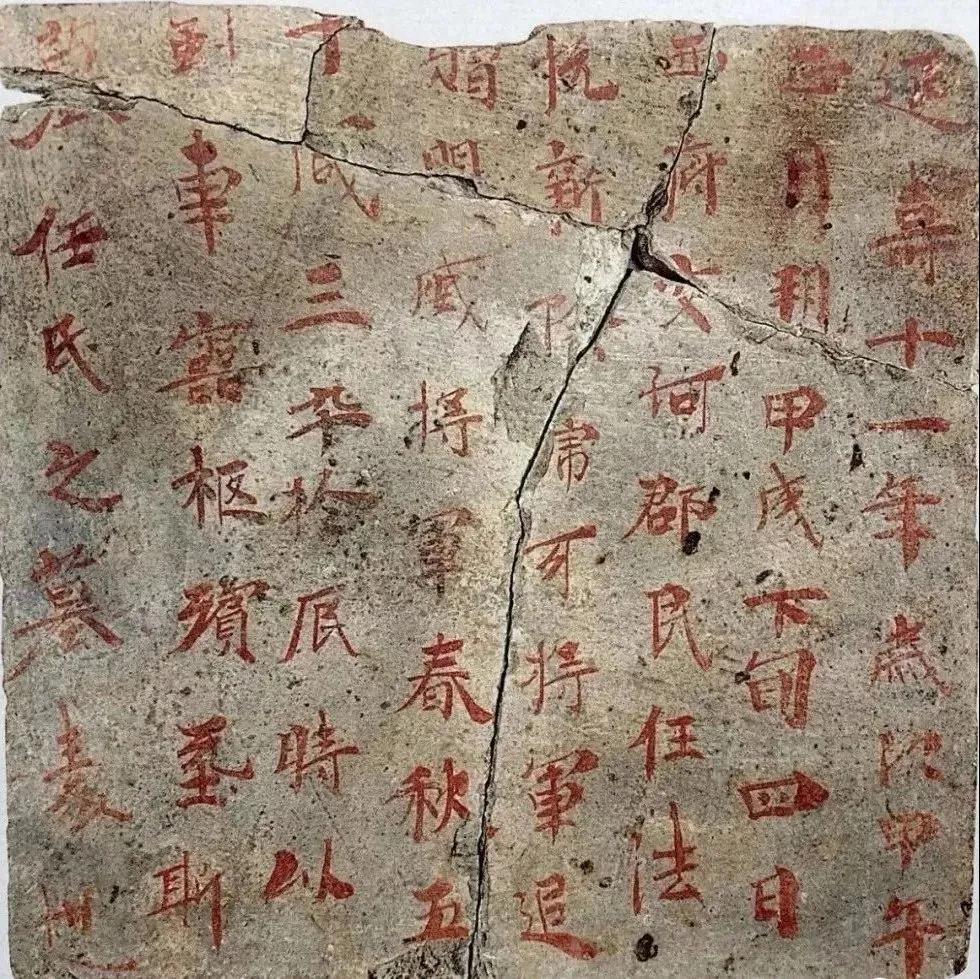 延壽十一年歲次甲午
月朔甲戌下旬四日
西府交河郡民任法
悅新除虎牙將軍追
贈明威將軍春秋五
十咸三卒於辰時以
車靈柩殯葬斯
任氏之墓表也